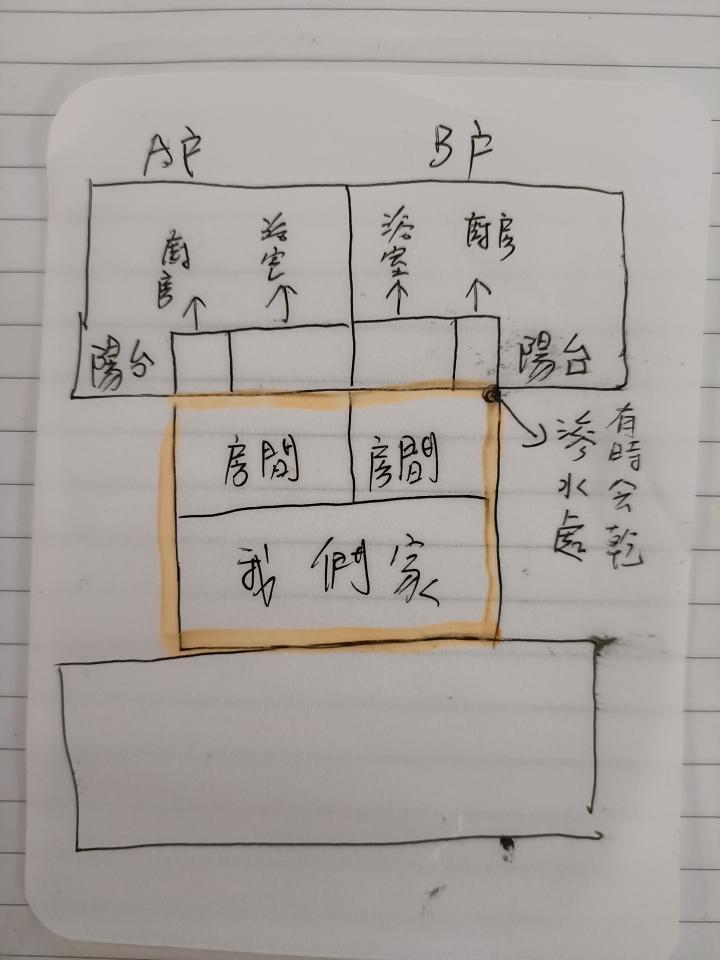 A户 B户
廚房
浴室
浴室
廚房
陽台
陽台
房間
房間
我們家
滲水處
有時会乾